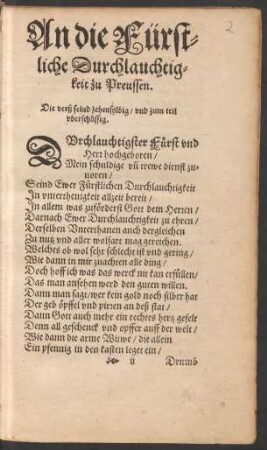 2
An die Fürst-
liche Durchlauchtig-
keit zu Preussen.
Die verß seind zehensylbig / vnd zum teil
vberschüssig.
DVrchlauchtigster Fürst vnd
Herr hochgeboren /
Mein schuldige vñ trewe dienst zu-
uoren /
Seind Ewer Fürstlichen Durchlauchtigkeit
In vnterthenigkeit allzeit bereit /
In allem was zuförderst Gott dem Herren /
Darnach Ewer Durchlauchtigkeit zu ehren /
Derselben Vnterthanen auch dergleichen
Zu nutz vnd aller wolfart mag gereichen.
Welches ob wol sehr schlecht ist vnd gering /
Wie dann in mir zuachten alle ding /
Doch hoff ich was das werck nit kan erfüllen /
Das man ansehen werd den guten willen.
Dann man sagt / wer kein gold noch silber hat
Der geb öpffel vnd piren an deß stat /
Dann Gott auch mehr ein rechtes hertz gefelt
Denn all geschenck vnd opffer auff der welt /
Wie dann die arme Witwe / die allein
Ein pfennig in den kasten leget ein /
ij Drumb